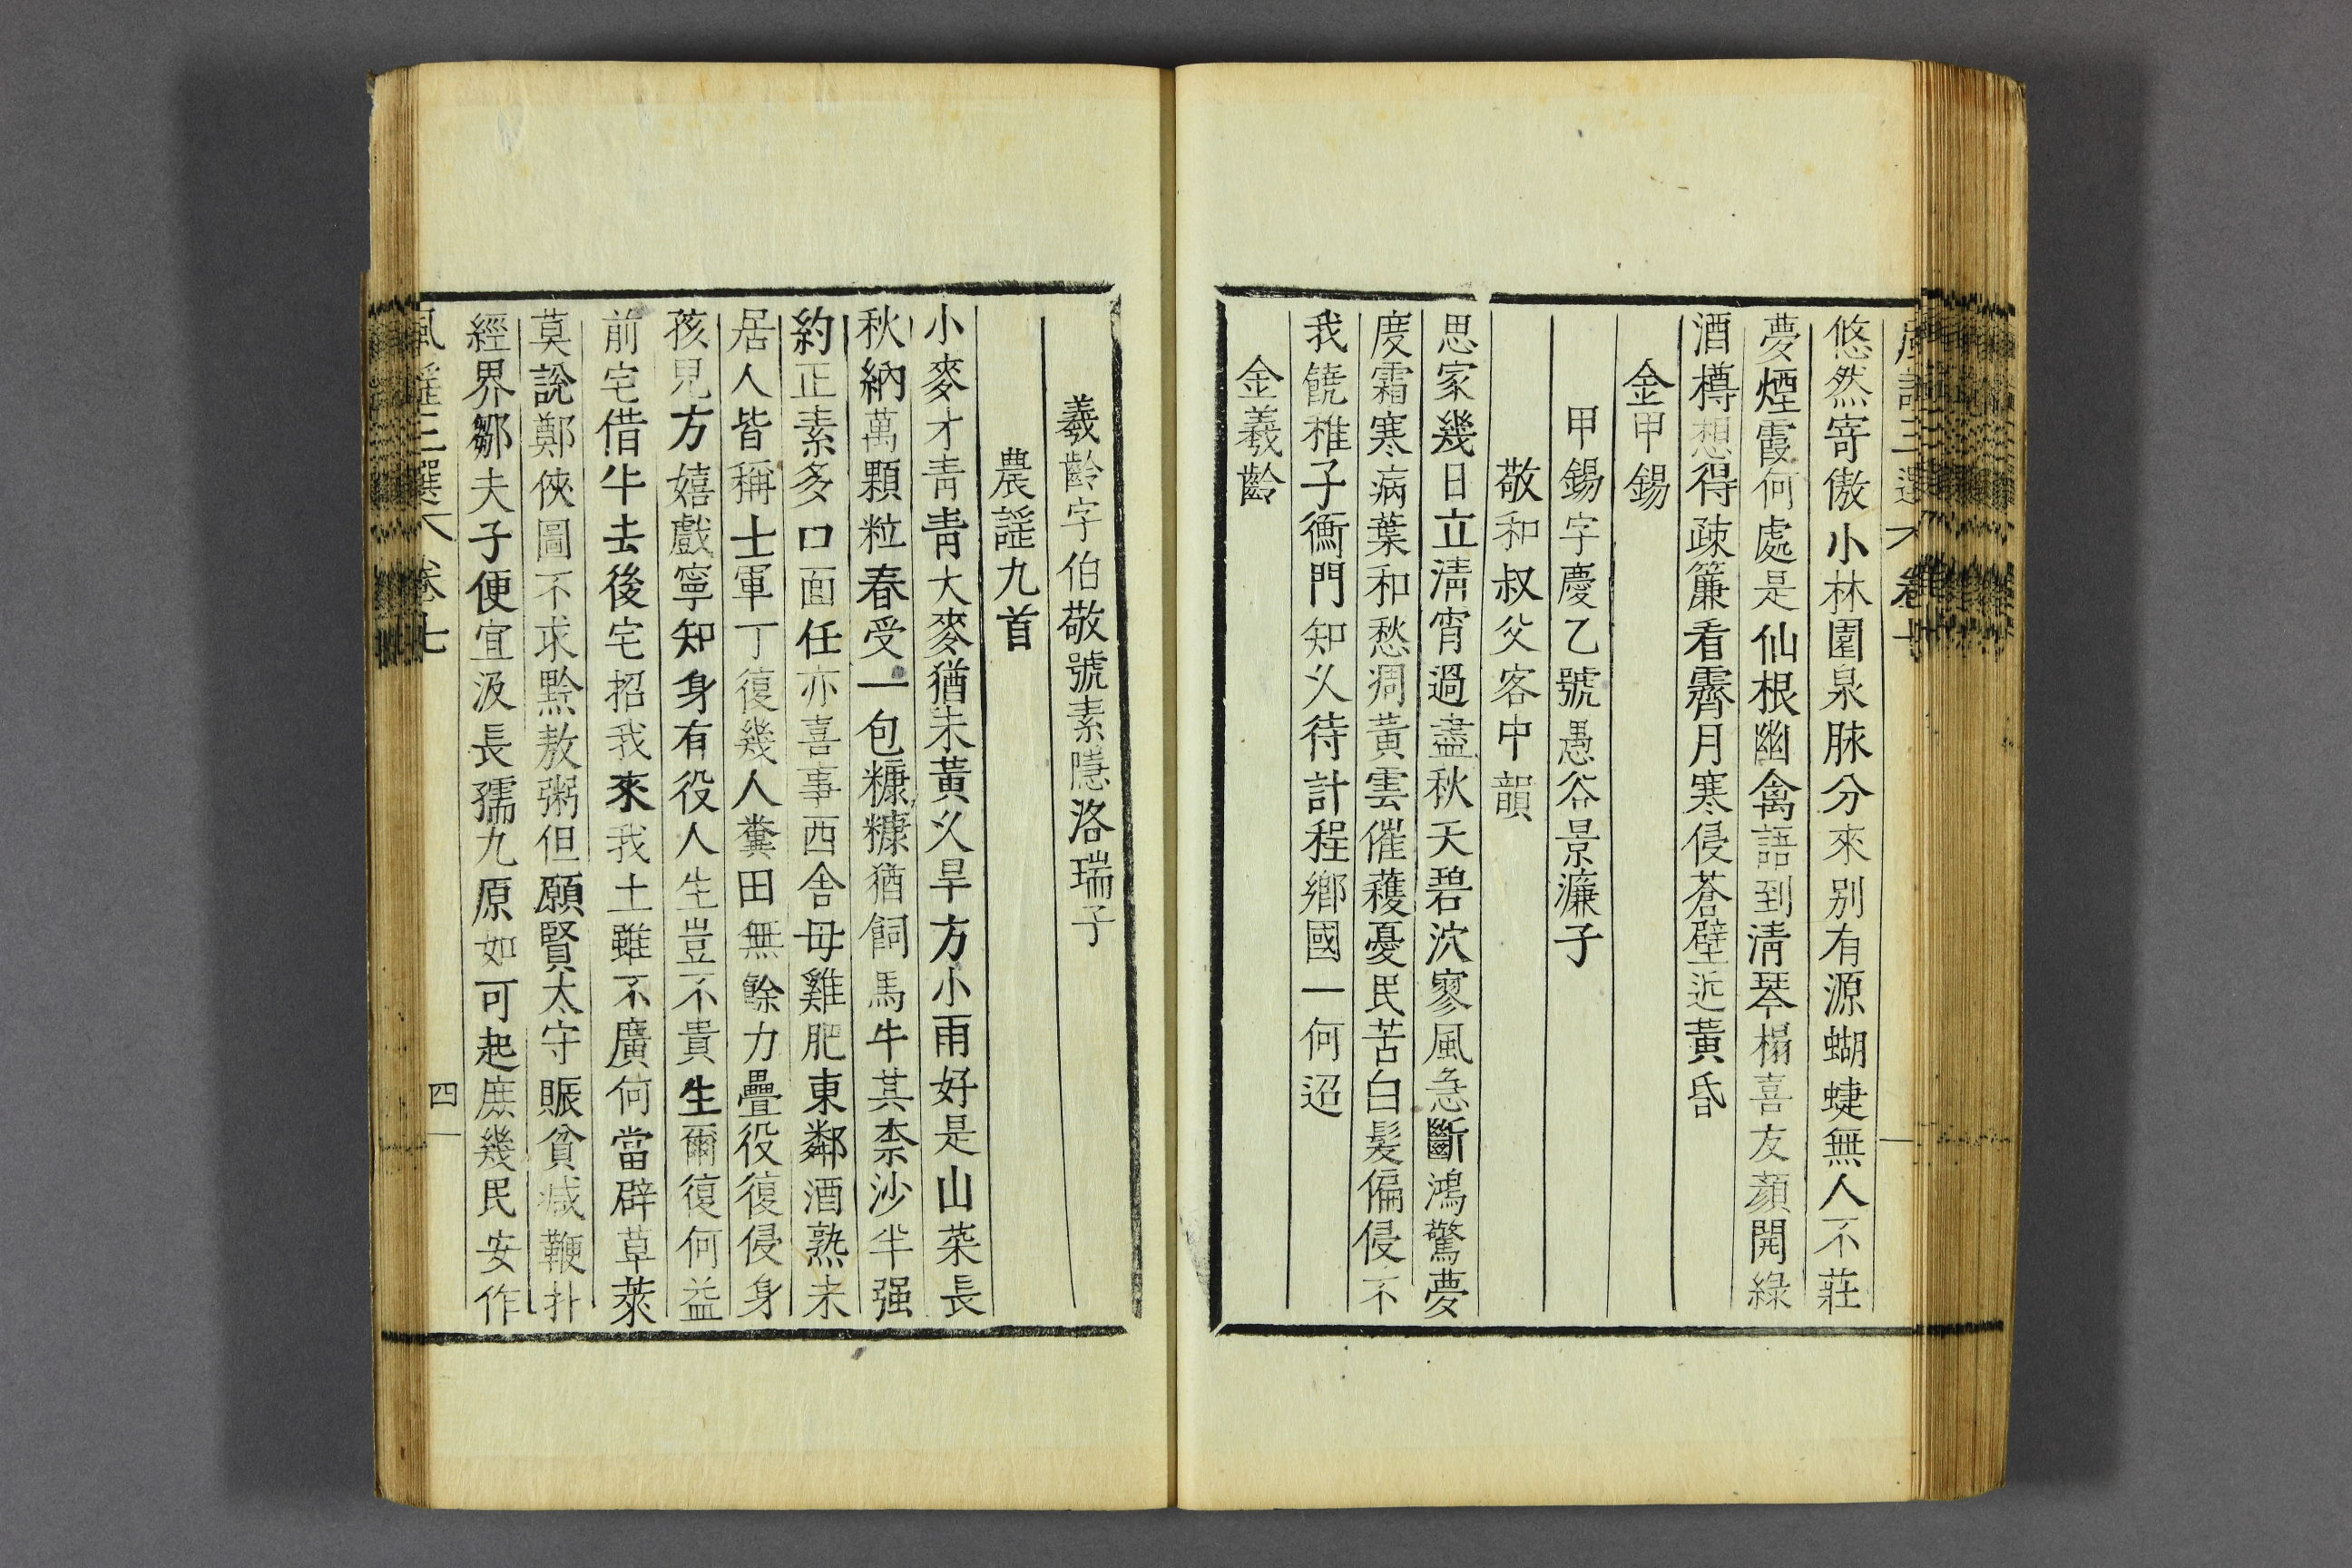 悠然寄傲小林園泉脉分來别有源蝴蜨無人不莊
夢煙霞何處是仙根幽禽語到清琴榻喜友顔開綠
酒樽想得疎簾看霽月寒侵蒼壁近黃昏
金甲錫
甲錫字慶乙號愚谷景濂子
敬和叔父客中韻
思家幾日立淸宵過盡秋天碧泬寥風急斷鴻驚夢
度霜寒病葉和愁凋黃雲催穫憂民苦白髮偏侵不
我饒稚子衡門知乆待計程鄉國一何迢
金羲齡
羲齡字伯敬號素隱洛瑞子
農謠九首
小麥才靑靑大麥猶未黃乆旱方小雨好是山菜長
秋納萬顆粒春受一包糠糠猶飼馬牛其柰沙半强
約正素多口面任亦喜事西舍母雞肥東鄰酒熟未
居人皆稱士軍丁復幾人糞田無餘力疊役復侵身
孩兒方嬉戲寧知身有役人生豈不貴生爾復何益
前宅借牛去後宅招我來我土雖不廣何當辟草萊
莫說鄭俠圖不求黔敖粥但願賢太守賑貧減鞭扑
經界鄒夫子便宜汲長孺九原如可起庶幾民安作
風謠三選 卷七
四